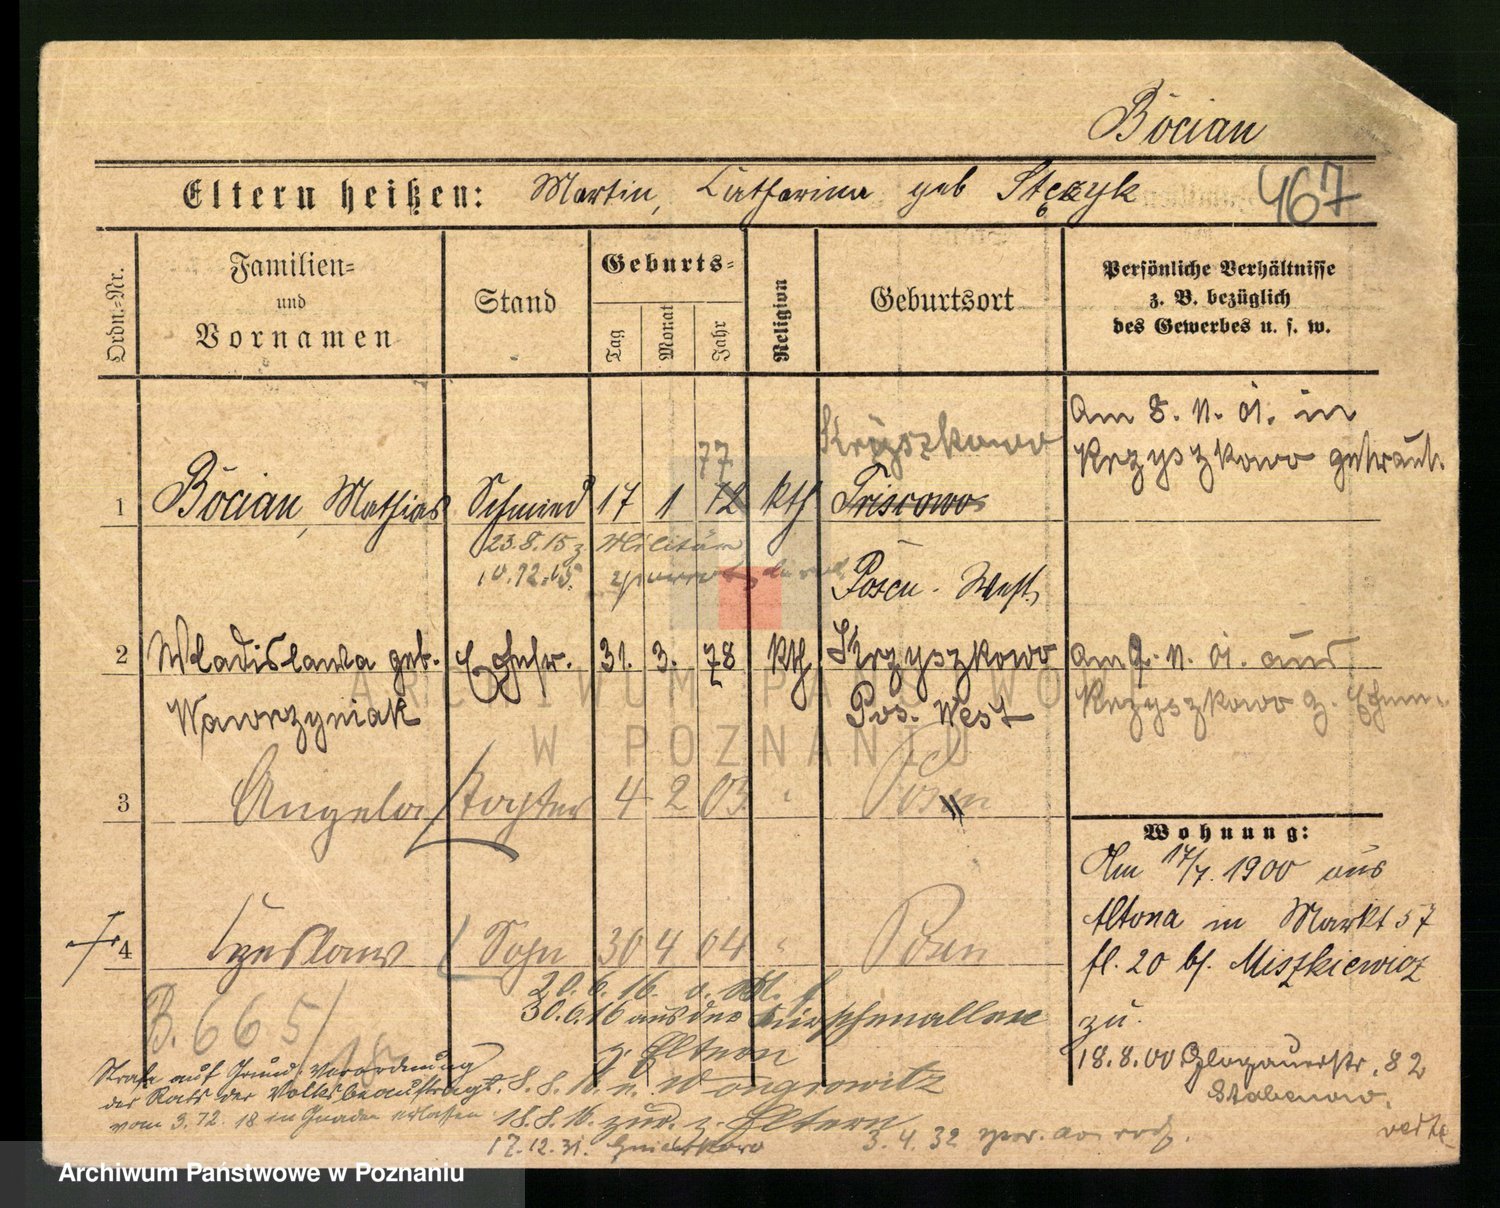 Bocian
Eltern heißen: Martin, Catharina geb Stęczyk
467
Ordn.-Nr.
Familien-
und
Vornamen
Stand
Geburts-
Tag
Monat
Jahr
Religion
Geburtsort
Persönliche Verhältnisse
z. B. bezüglich
des Gewerbes u. s. w.
Am 8. 11. 01. in
Krzyszkowo getraut.
77
Krzyszkowo
1 Bocian, Mathias Schmied 17 1 72 kth
23.8.15 z Militär
10.12.15.
Posen-West,
2 Wladislawa geb. Ehefr. 31. 3. 78 kth Krzyszkowo
Wawrzyniak Pos. West
Am 9. 11. 01. aus
Krzyszkowo z.
3 Angela Tochter 4 2 03 Posen
Wohnung:
Am 17/7. 1900 aus
Altona in Markt 57
fl. 20 bf. Miszkiewicz
zu.
4 Czeslaw Sohn 30 4 04 " Posen
20.6.16
30.6.16 aus der
z. Eltern
B. 665/18
Strafe auf Grund Verordnung
der Rats der Volksbeauftragt.
vom 3.12.18 in Gnaden erlassen
8.8.16 n. Wongrowitz
18.8.16 zur. z. Eltern
17.12.31.
3.4.32
18.8.00 Glogauerstr. 82
Stabenow.
verte
ARCHIWUM PAŃSTWOWE
W POZNANIU
Archiwum Państwowe w Poznaniu